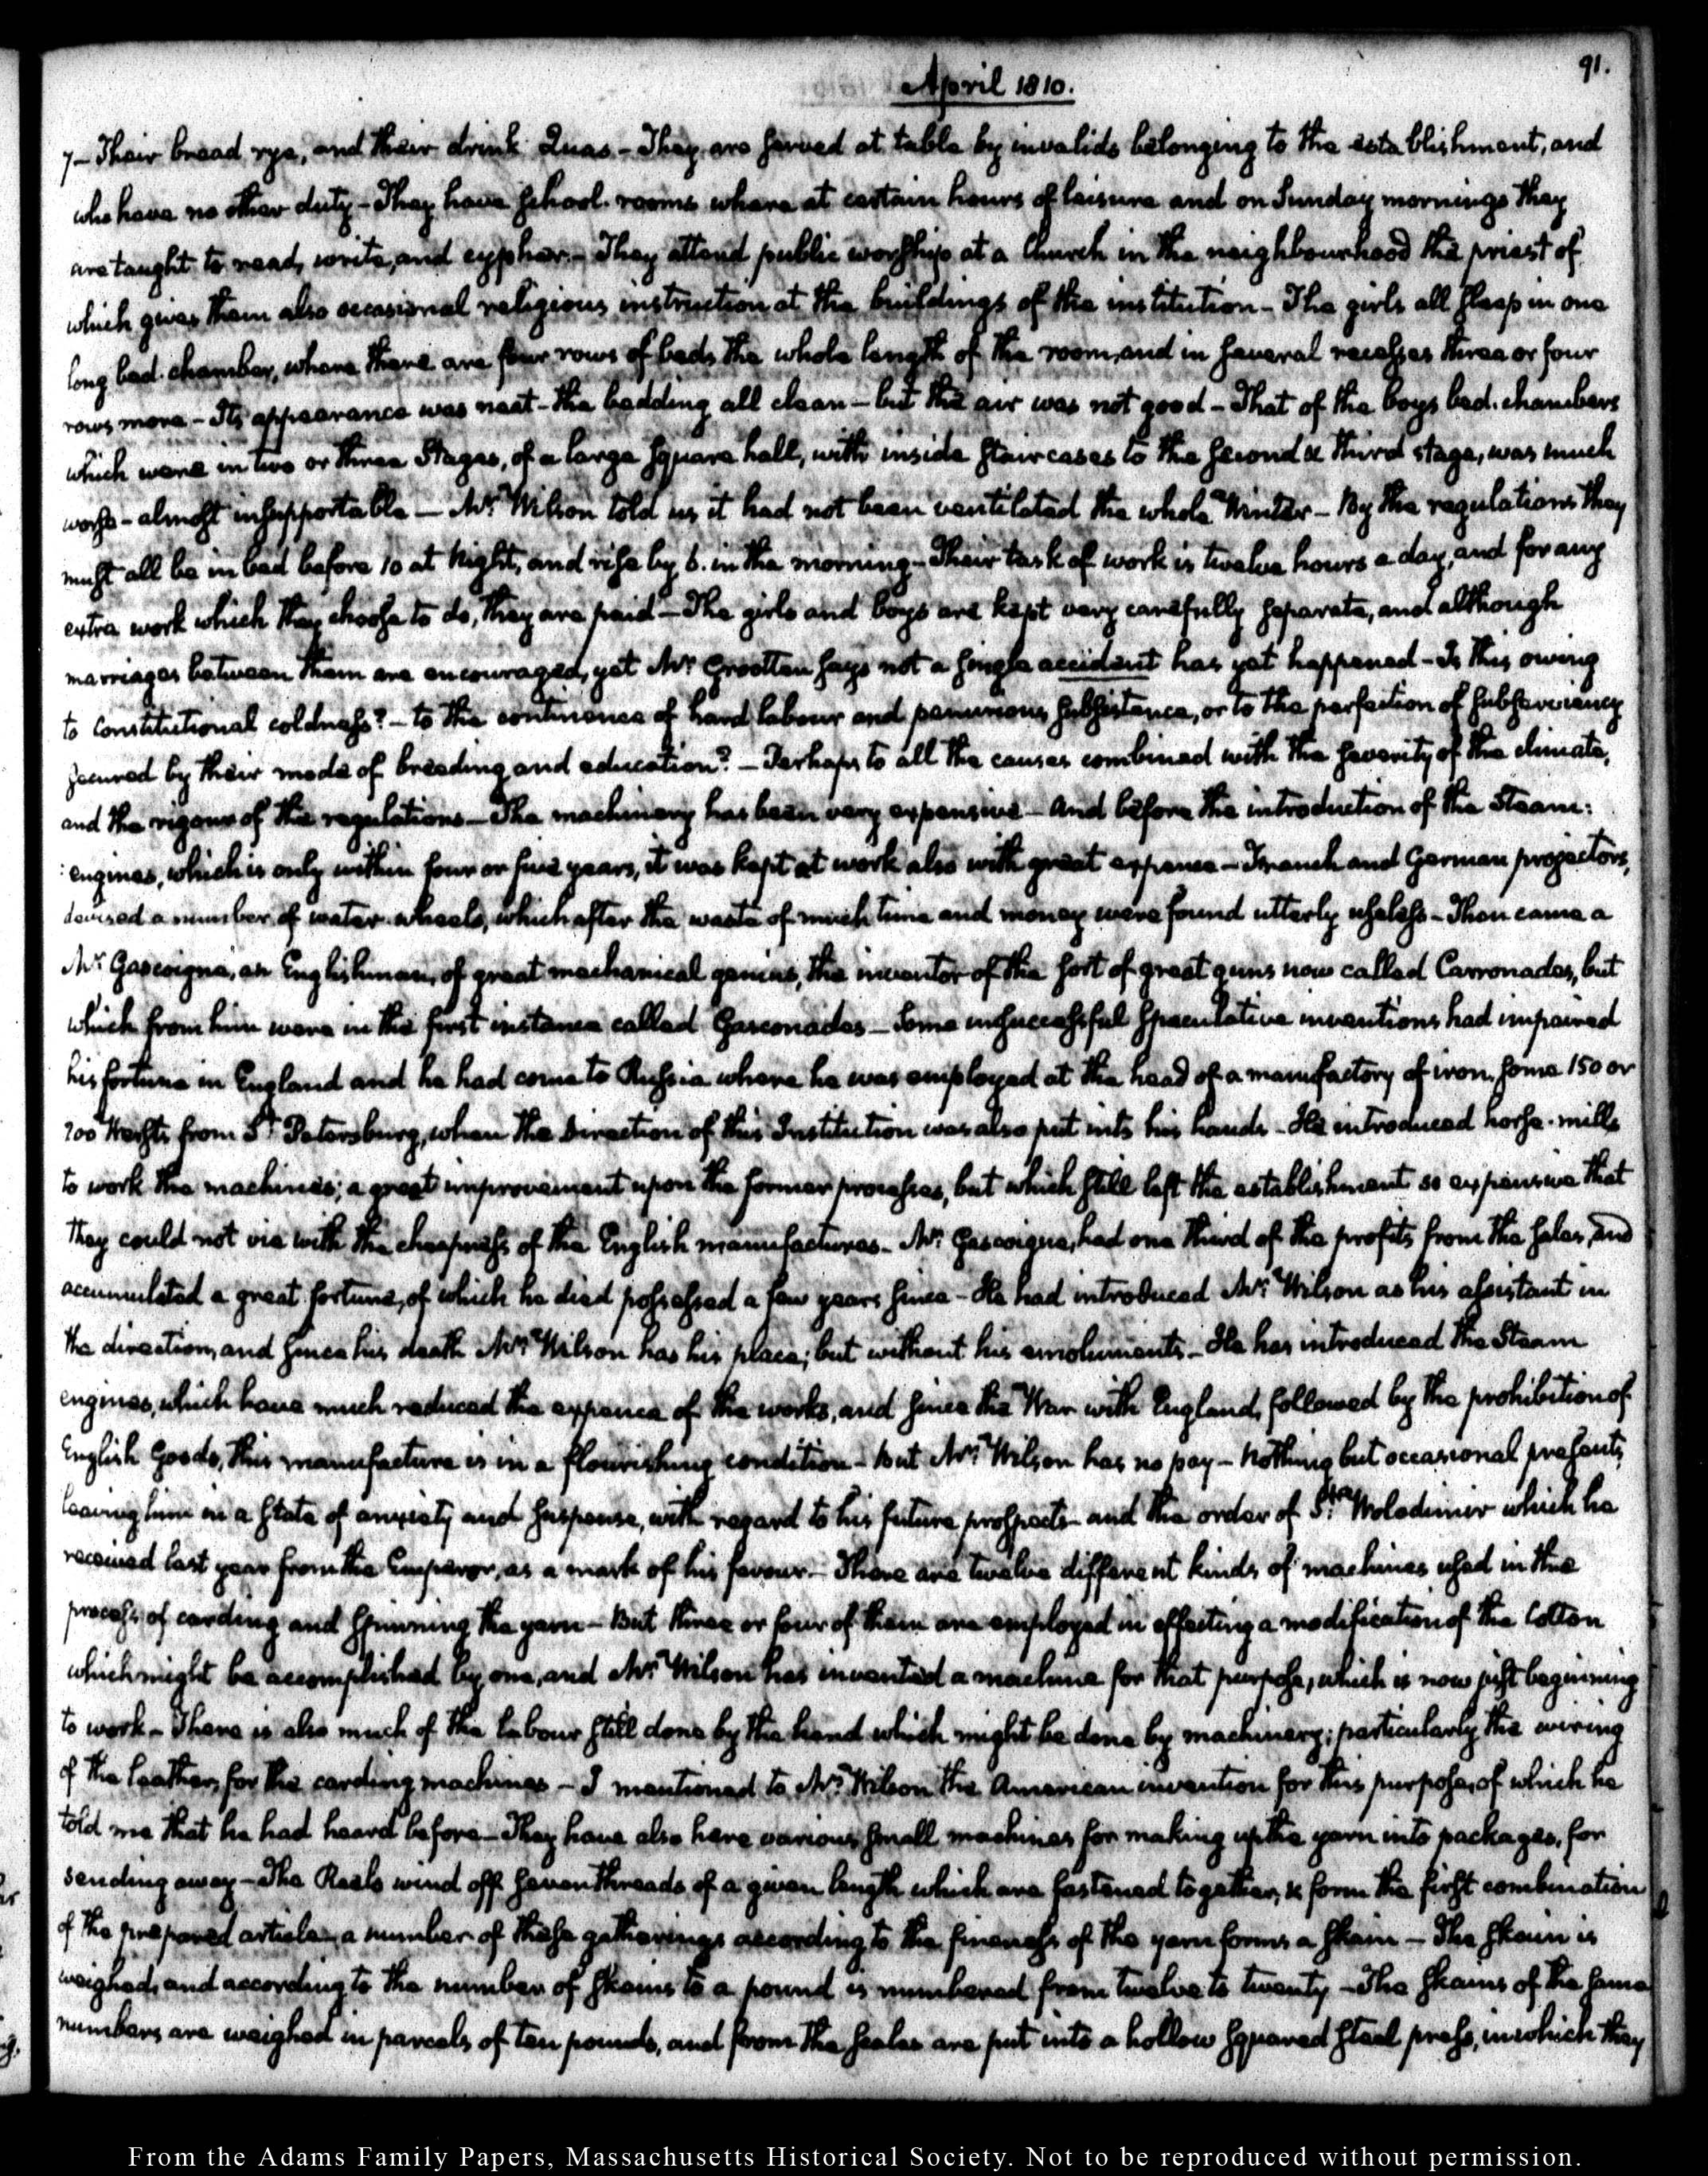 91.
April 1810.
7— Their bread rye, and their drink Quas — They are served at table by invalids belonging to the establishment, and
who have no other duty — They have school-rooms where at certain hours of leisure and on Sunday mornings they
are taught to read, write, and cypher. — They attend public worship at a Church in the neighbourhood the priest of
which gives them also occasional religious instruction at the buildings of the institution — The girls all sleep in one
long bed-chamber, where there are four rows of beds the whole length of the room, and in several recesses three or four
rows more — Its appearance was neat — the bedding all clean — but the air was not good — That of the boys bed-chambers
which were in two or three Stages, of a large square hall, with inside staircases to the second & third stage, was much
worse — almost insupportable — Mr. Wilson told us it had not been ventilated the whole Winter — By the regulations they
must all be in bed before 10 at Night, and rise by 6. in the morning — Their task of work is twelve hours a day, and for any
extra work which they choose to do, they are paid — The girls and boys are kept very carefully separate, and although
marriages between them are encouraged, yet Mr. Grootten says not a single accident has yet happened — Is this owing
to constitutional coldness? — to the continence of hard labour and penurious subsistence, or to the perfection of subserviency
secured by their mode of breeding and education? — Perhaps to all the causes combined with the severity of the climate,
and the rigour of the regulations — The machinery has been very expensive — And before the introduction of the Steam:
:engines, which is only within four or five years, it was kept at work also with great expence — French and German projectors,
devised a number of water-wheels, which after the waste of much time and money were found utterly useless — Then came a
Mr. Gascoigne, an Englishman, of great mechanical genius, the inventor of the sort of great guns now called Carronades, but
which from him were in the first instance called Gasconades — Some unsuccessful speculative inventions had impaired
his fortune in England and he had come to Russia where he was employed at the head of a manufactory of iron, some 150 or
200 Wersts from St. Petersburg, when the Direction of this Institution was also put into his hands — He introduced horse-mills
to work the machines; a great improvement upon the former processes, but which still left the establishment so expensive that
they could not vie with the cheapness of the English manufactures — Mr. Gascoigne, had one third of the profits from the sales, and
accumulated a great fortune, of which he died possessed a few years since — He had introduced Mr. Wilson as his assistant in
the direction, and since his death Mr. Wilson has his place; but without his emoluments — He has introduced the Steam
engines, which have much reduced the expence of the works, and since the War with England, followed by the prohibition of
English Goods, this manufacture is in a flourishing condition — But Mr. Wilson has no pay — Nothing but occasional presents,
leaving him in a state of anxiety and suspense, with regard to his future prospects — and the order of St. Wolodimir which he
received last year from the Emperor, as a mark of his favour. — There are twelve different kinds of machines used in the
process of carding and spinning the yarn — But three or four of them are employed in effecting a modification of the Cotton
which might be accomplished by one, and Mr. Wilson has invented a machine for that purpose, which is now just beginning
to work — There is also much of the labour still done by the hand which might be done by machinery; particularly the wiring
of the leather, for the carding machines — I mentioned to Mr. Wilson the American invention for this purpose, of which he
told me that he had heard before — They have also here various small machines for making up the yarn into packages, for
sending away — The Reels wind off seven threads of a given length which are fastened together, & form the first combination
of the prepared article — a number of these gatherings according to the fineness of the yarn forms a skain — The skain is
weighed, and according to the number of skains to a pound is numbered from twelve to twenty — The skains of the same
numbers are weighed in parcels of ten pounds, and from the scales are put into a hollow squared steel press, in which they
From the Adams Family Papers, Massachusetts Historical Society. Not to be reproduced without permission.